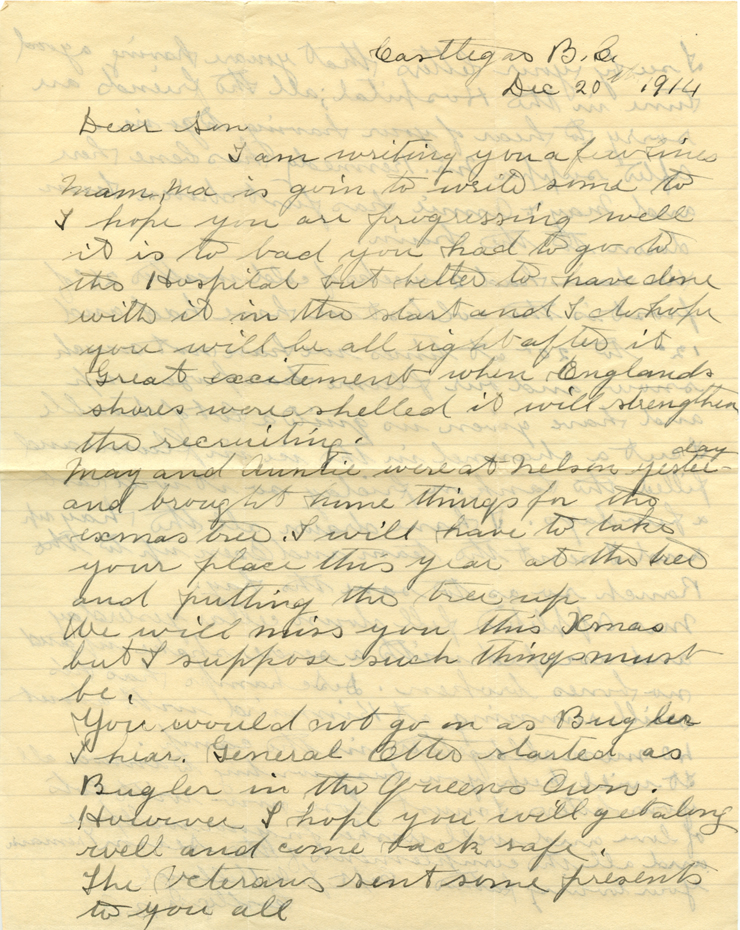 Castlegar B.C.
Dec 20th 1914
Dear Son
I am writing you a few lines
Mam,ma is goin to write some to
I hope you are progressing well
it is to bad you had to go to
the Hospital but better to have done
with it in the start and I do hope
you will be all right after it
Great excitement when Englands
shores were ashelled it will strengthen
the recruiting.
May and Auntie were at Nelson yester-day
and brought home things for the
exmas tree. I will have to take
your place this year at the tree
and putting the tree up
We will miss you this Xmas
but I suppose such things must
be.
You would not go on as Bugler
I hear. General Otter started as
Bugler in the Queens Own.
However I hope you will get along
well and come back safe.
The Veterans sent some presents
to you all